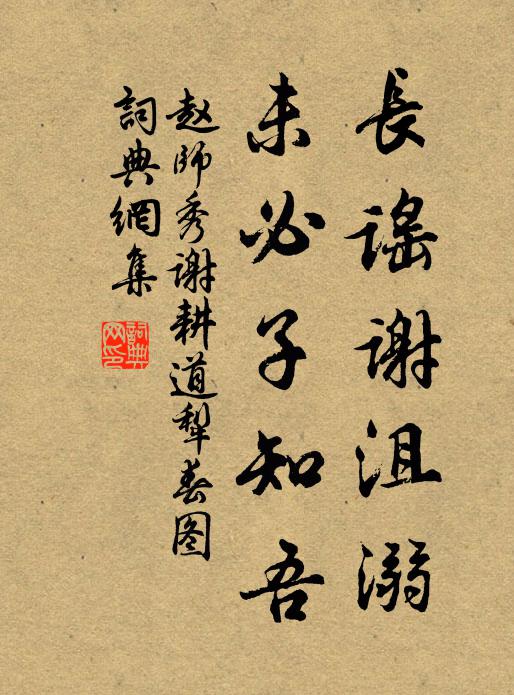 長謡謝沮溺
未必子知吾
赵師秀谢耕道犁春图
詞典網集
詞典网印